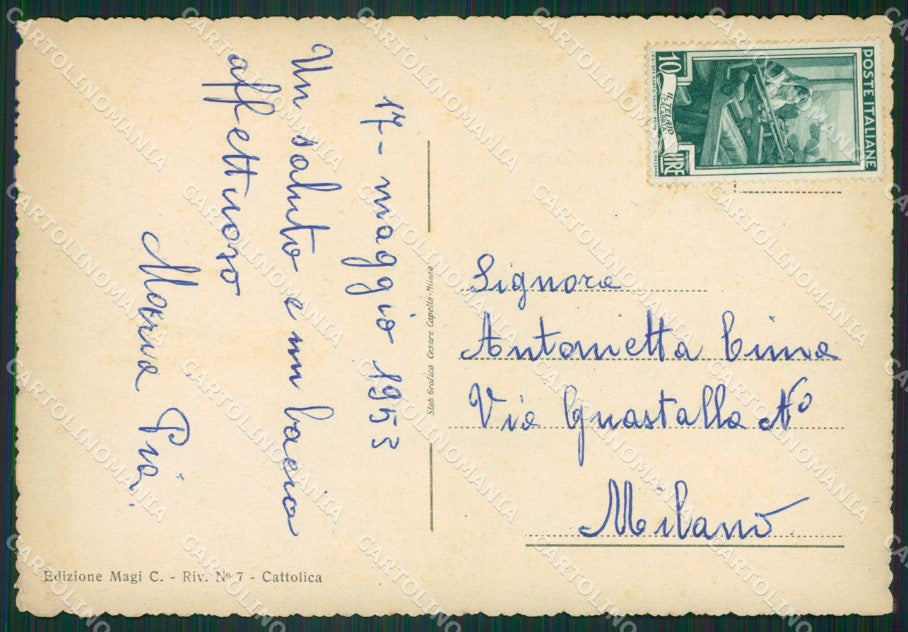 17 - maggio 1953
Un saluto e un bacio
affettuoso
Maria Pia.
Stab. Grafico Cesare Capello - Milano
Edizione Magi C. - Riv. Nº 7 - Cattolica
POSTE ITALIANE
10
LIRE
IL TELAIO
Signora
Antonietta Cima
Via Guastalla Nº
Milano
CARTOLINOMANIA